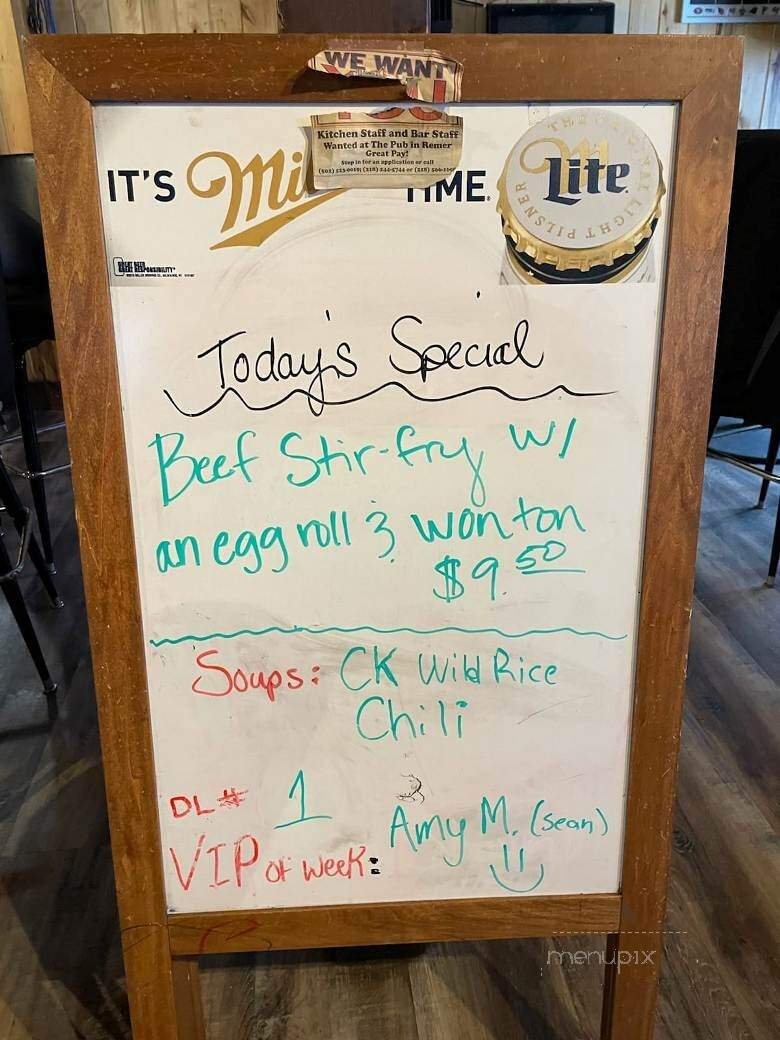 WE WANT
YOU
Kitchen Staff and Bar Staff
Wanted at The Pub in Remer
Great Pay!
Stop in for an application or call
IT'S Mi TIME.
THE ORIGINAL LIGHT PILSNER
Lite
GREAT BEER
GREAT RESPONSIBILITY
Today's Special
Beef Stir-fry w/
an egg roll & won ton
$9.50
Soups: CK Wild Rice
Chili
DL# 1
VIP of week: Amy M. (sean)
menupix